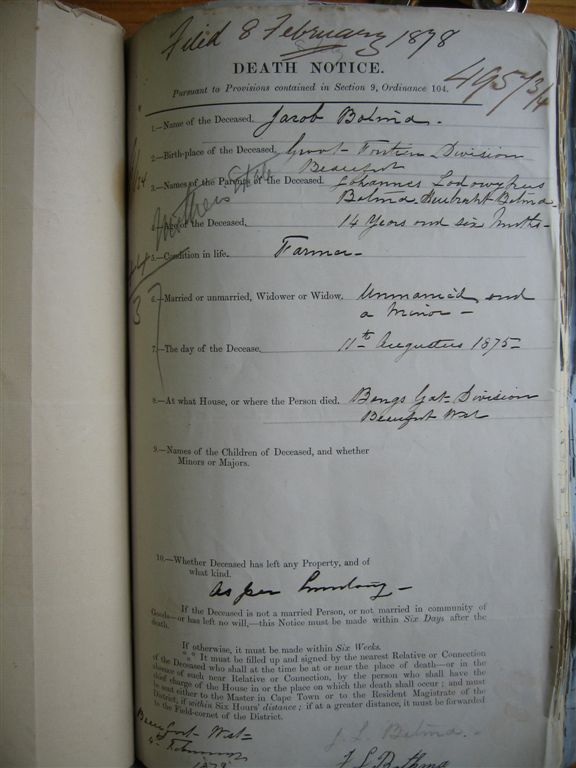 Filed 8 February 1878
DEATH NOTICE.
Pursuant to Provisions contained in Section 9, Ordinance 104.
495 3/4
1.—Name of the Deceased. Jacob Botma.
2.—Birth-place of the Deceased. Groot Fontein Division
Beaufort
3.—Names of the Parents of the Deceased. Johannes Lodowykus
Botma Botma
4.—Age of the Deceased. 14 Years and six Months—
5.—Condition in life. Farmer—
6.—Married or unmarried, Widower or Widow. Unmarried and
a Minor—
7.—The day of the Decease. 11th Augustus 1875—
8.—At what House, or where the Person died. Gat Division
Beaufort West
9.—Names of the Children of Deceased, and whether
Minors or Majors.
10.—Whether Deceased has left any Property, and of
what kind.
As per Inventory—
If the Deceased is not a married Person, or not married in community of
Goods—or has left no will,—this Notice must be made within Six Days after the
death.
If otherwise, it must be made within Six Weeks.
It must be filled up and signed by the nearest Relative or Connection
of the Deceased who shall at the time be at or near the place of death—or in the
absence of such near Relative or Connection, by the person who shall have the
chief charge of the House in or the place on which the death shall occur; and must
be sent either to the Master in Cape Town or to the Resident Magistrate of the
District, if within Six Hours' distance; if at a greater distance, it must be forwarded
to the Field-cornet of the District.
Beaufort West
4 February
1878
J. L. Botma.
J L Bothma